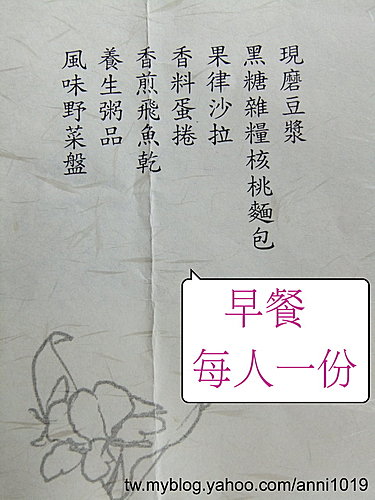 現磨豆漿
黑糖雜糧核桃麵包
果律沙拉
香料蛋捲
香煎飛魚乾
養生粥品
風味野菜盤
早餐
每人一份
tw.myblog.yahoo.com/anni1019